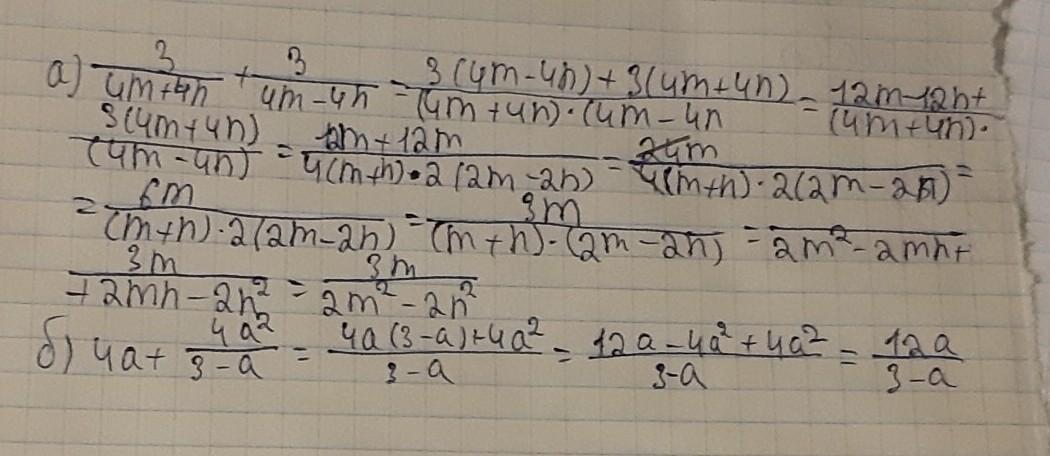 а) 3/(4m+4n) + 3/(4m-4n) = (3(4m-4n)+3(4m+4n))/((4m+4n)·(4m-4n) = (12m-12n+)/((4m+4n)·
(3(4m+4n))/((4m-4n)) = (12m+12m)/(4(m+n)·2(2m-2n)) = (24m)/(4(m+n)·2(2m-2n)) =
= (6m)/((m+n)·2(2m-2n)) = (3m)/((m+n)·(2m-2n)) = /(2m²-2mn+
(3m)/(+2mn-2n²) = (3m)/(2m²-2n²)
б) 4a + 4a²/(3-a) = (4a(3-a)+4a²)/(3-a) = (12a-4a²+4a²)/(3-a) = 12a/(3-a)